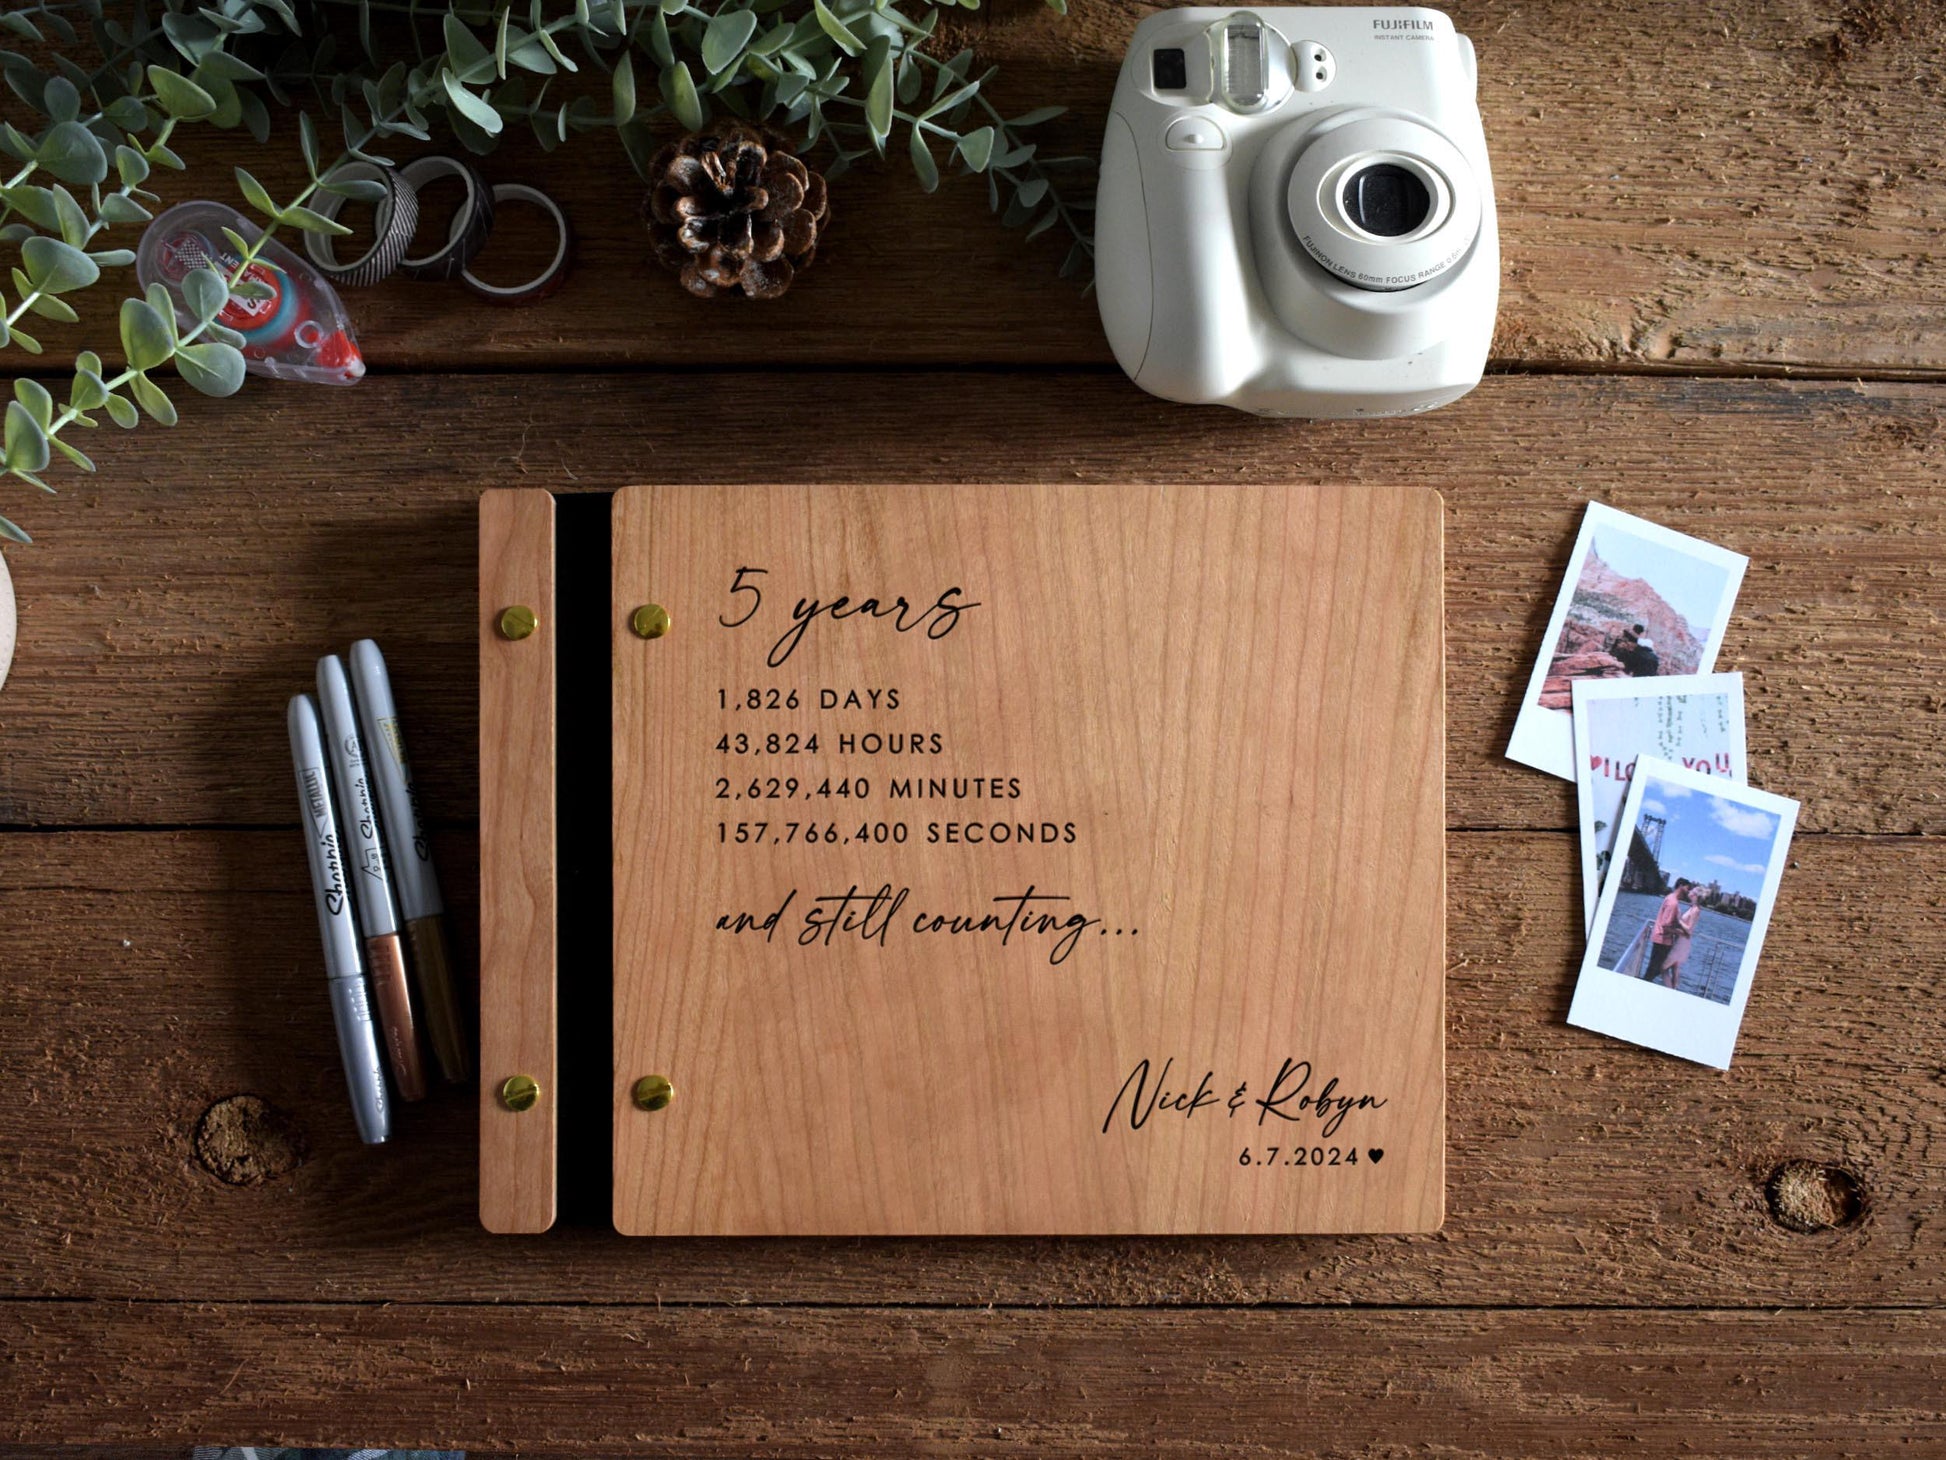 FUJIFILM
INSTANT CAMERA
FUJINON LENS 60mm FOCUS RANGE 0.6m
5 years
1,826 DAYS
43,824 HOURS
2,629,440 MINUTES
157,766,400 SECONDS
and still counting...
Nick & Robyn
6.7.2024♥
Sharpie METALLIC
Sharpie